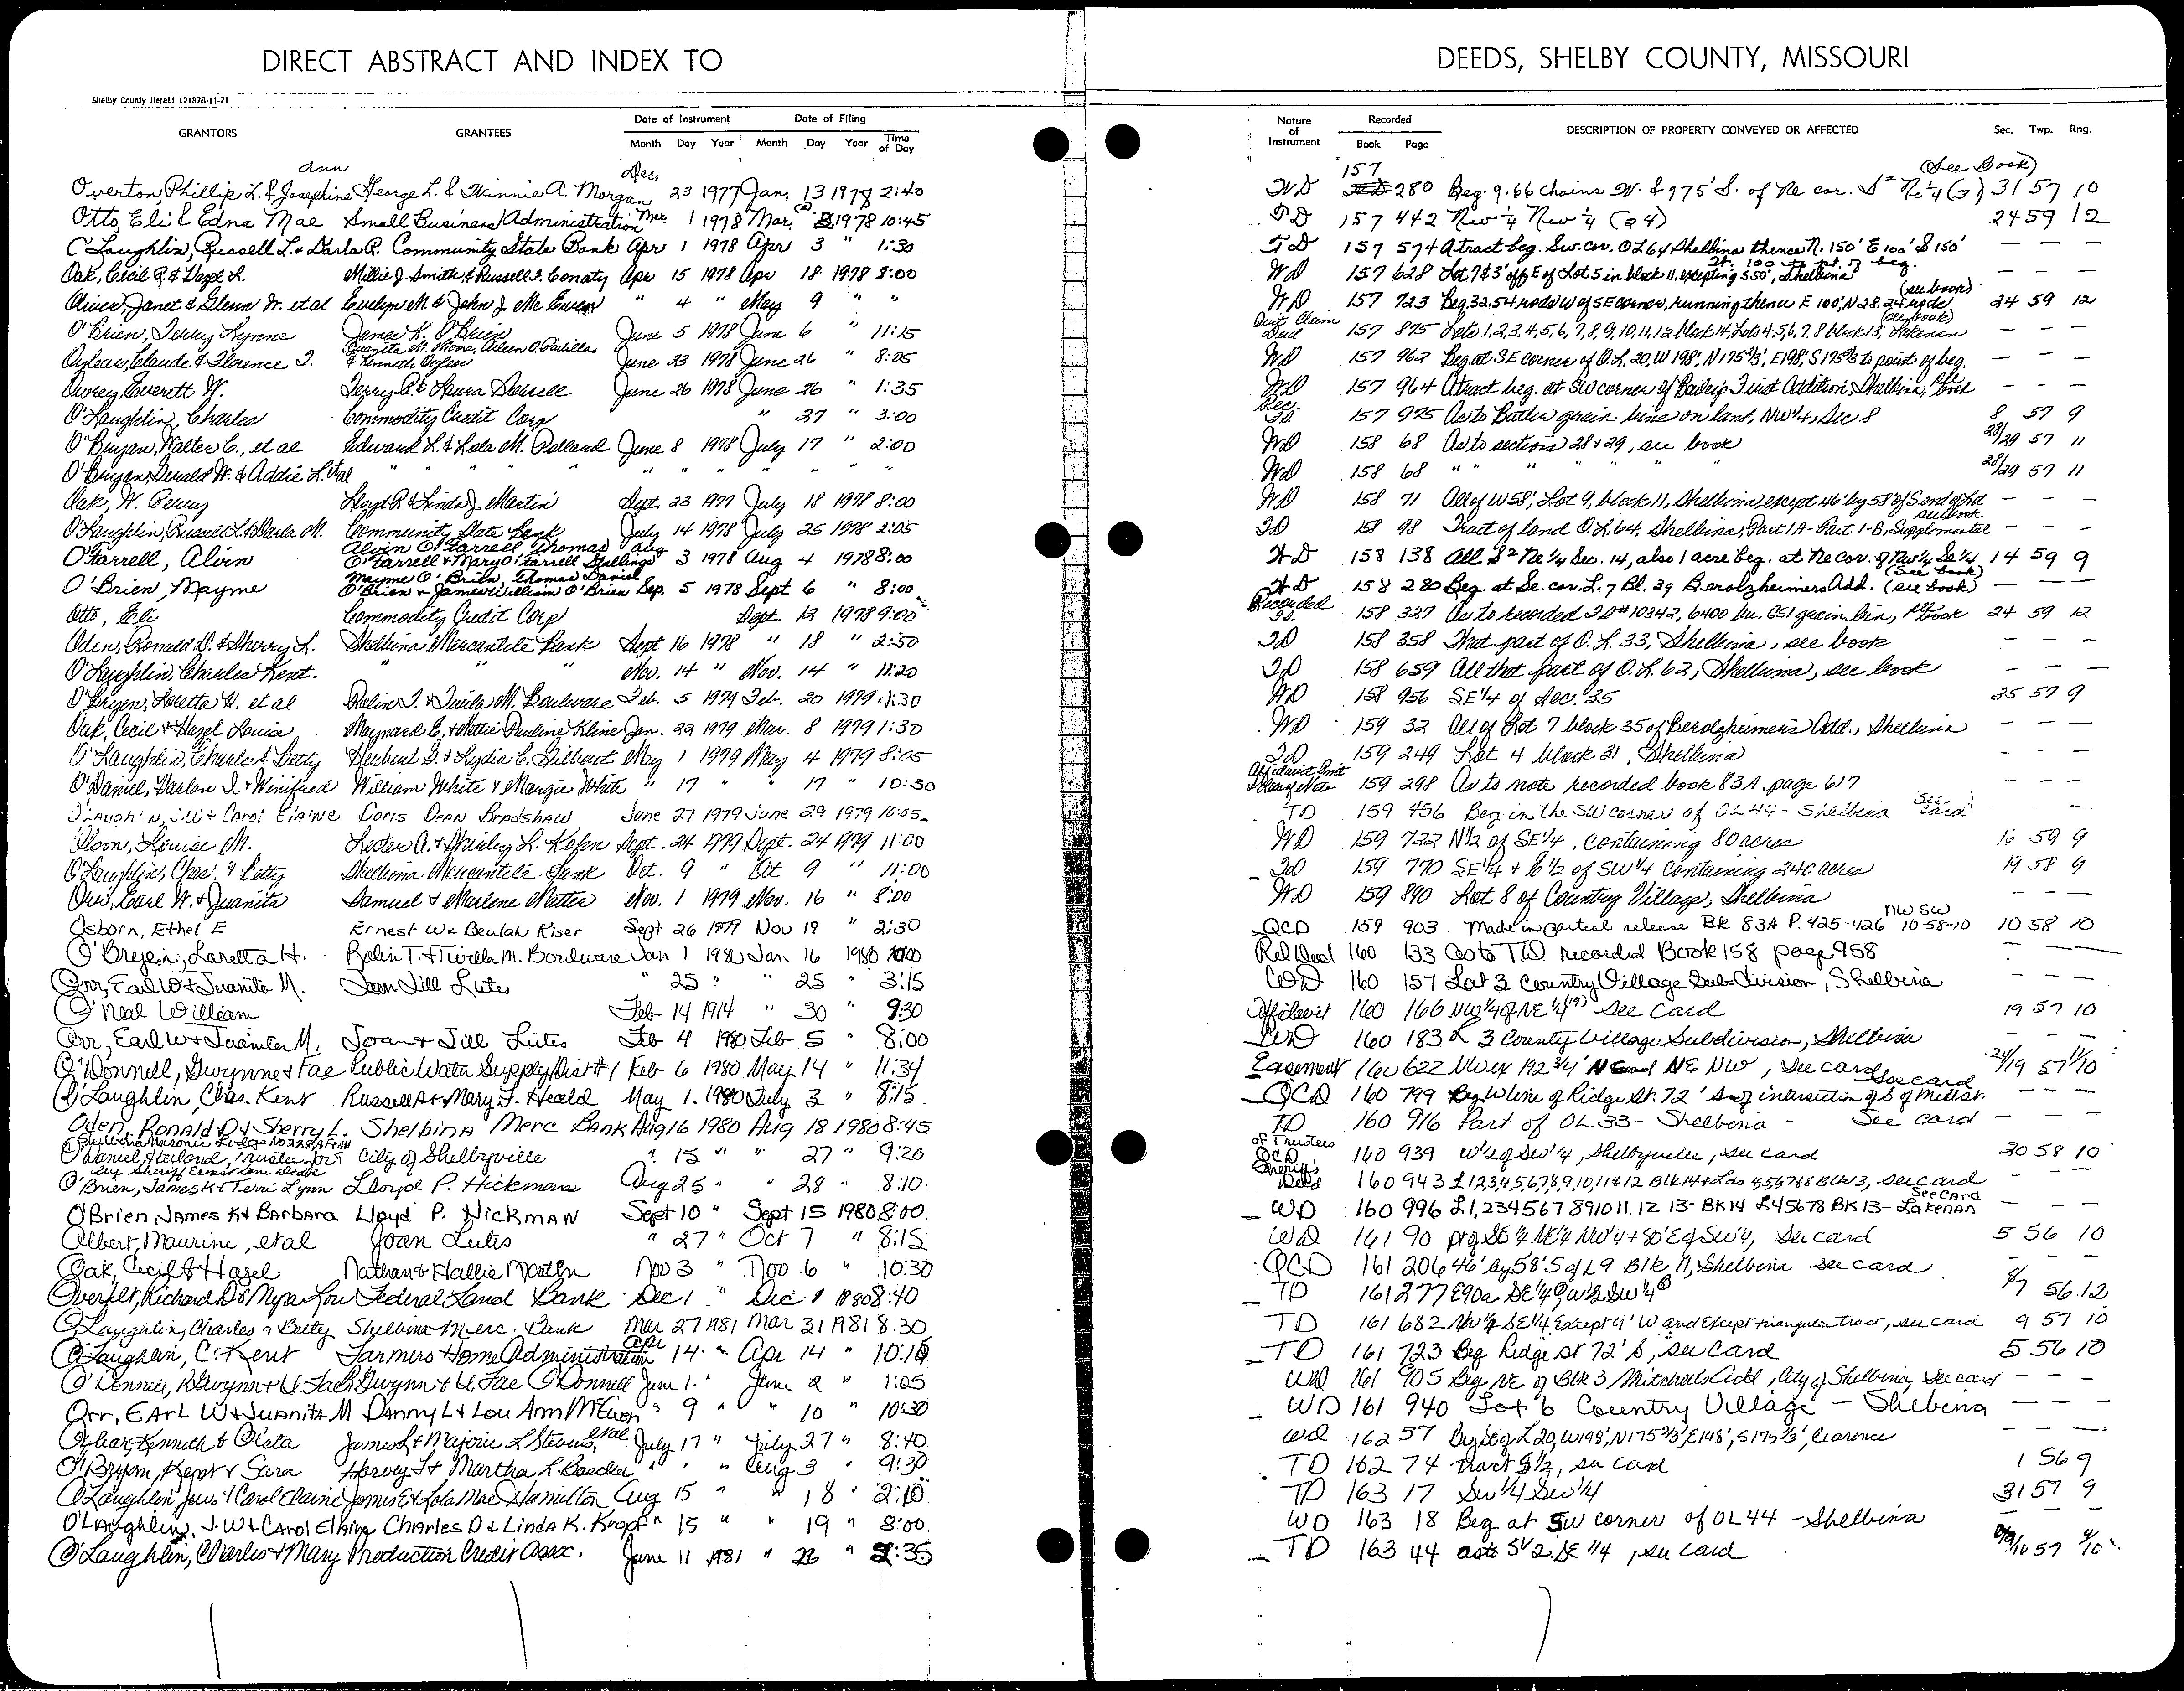 DIRECT ABSTRACT AND INDEX TO
DEEDS, SHELBY COUNTY, MISSOURI
Shelby County Herald 12187B-11-71
GRANTORS GRANTEES Date of Instrument Month Day Year Date of Filing Month Day Year Time of Day
Nature of Instrument Recorded Book Page DESCRIPTION OF PROPERTY CONVEYED OR AFFECTED Sec. Twp. Rng.
Overton, Phillip L. & Josephine Ann George L. & Winnie A. Morgan Dec. 23 1977 Jan. 13 1978 2:40 WD 157 280 Beg. 9.66 chains W. & 975' S. of Ne cor. (See Book) 31 57 10
Otto, Eli & Edna Mae Small Business Administration Mar. 1 1978 Mar. 1978 10:45 157 442 Nw ¼ Nw ¼ (24) 24 59 12
O'Laughlin, Russell L. & Darla R. Community State Bank Apr 1 1978 Apr 3 " 1:30 TD 157 574 A tract beg. Sw. cor. OL 64 Shelbina thence N. 150' E 100' S 150' W. 100 to pt. of beg. — — —
Oak, Cecil R. & Hazel L. Millie J. Smith & Russell F. Conaty Apr 15 1978 Apr 18 1978 8:00 WD 157 628 Lot 7 & 3' off E of Lot 5 in block 11, excepting S 50', Shelbina — — —
Oliver, Janet & Glenn W. et al Evelyn M. & John J. Mc Ewen " 4 " May 9 " " WD 157 723 Beg. 32.54 rods W of SE corner, running thence E 100', N 28.24 rods (see book) 24 59 12
O'Brien, Terry Lynne James K. O'Brien June 5 1978 June 6 " 11:15 Quit Claim Deed 157 875 Lots 1,2,3,4,5,6,7,8,9,10,11,12 block 14, Lots 4,5,6,7,8 block 13, Lakenan (see book) — — —
Claude & Florence I. Juanita M. Moore, Aileen O. Padillas & Kenneth June 23 1978 June 26 " 8:05 WD 157 962 Beg. at SE corner of O.L. 20, W 198', N 175⅔', E 198', S 175⅔ to point of beg. — — —
Everett W. Terry & Laura June 26 1978 June 26 " 1:35 WD 157 964 A tract beg. at SW corner of First Addition, Shelbina, — — —
O'Laughlin, Charles Commodity Credit Corp " 27 " 3:00 Rec. 157 975 As to Butler grain bins on land, NW¼, Sec. 8 8 57 9
O'Bryan, Walter C., et al Edward L. & Lola M. June 8 1978 July 17 " 2:00 WD 158 68 As to sections 28 & 29, see book 28/29 57 11
O'Bryan, Gerald W. & Addie L. et al " " " " " " " " WD 158 68 " " " " 28/29 57 11
Oak, W. Perry Lloyd R. & Linda J. Martin Sept. 23 1977 July 18 1978 8:00 WD 158 71 All of W 58', Lot 9, block 11, Shelbina, except 46' by 58' of S. end of Lot see book — — —
O'Laughlin, Russell L. & Darla M. Community State Bank July 14 1978 July 25 1978 2:05 TD 158 98 Tract of land O.L. 64, Shelbina, Part 1A - Part 1-B, Supplemental — — —
O'Farrell, Alvin Alvin O'Farrell, Thomas O'Farrell & Mary O'Farrell Stallings Aug 3 1978 Aug 4 1978 8:00 WD 158 138 All S² Ne ¼ Sec. 14, also 1 acre beg. at Ne Cor. of Nw ¼ Se ¼ (See book) 14 59 9
O'Brien, Mayme Mayme O'Brien, Thomas Daniel O'Brien & James William O'Brien Sep. 5 1978 Sept 6 " 8:00 WD 158 280 Beg. at Se. cor. L. 7 Bl. 39 Berolzheimers Add. (see book) — — —
Otto, Eli Commodity Credit Corp Sept. 13 1978 9:00 Recorded 158 327 As to recorded #10342, 6400 bu. GSI grain bin, book 24 59 12
Oden, Ronald D. & Sherry L. Shelbina Mercantile Bank Sept 16 1978 " 18 " 2:50 TD 158 358 That part of O.L. 33, Shelbina, see book — — —
O'Laughlin, Charles Kent. " " " Nov. 14 " Nov. 14 " 11:20 TD 158 659 All that part of O.L. 62, Shelbina, see book — — —
O'Bryen, Loretta H. et al Rolin T. & Twila M. Boulware Feb. 5 1979 Feb. 20 1979 1:30 WD 158 956 SE¼ of Sec. 35 35 57 9
Oak, Cecil & Hazel Louise Maynard E. & Mattie Pauline Kline Jan. 22 1979 Mar. 8 1979 1:30 WD 159 32 All of Lot 7 block 35 of Berolzheimer's Add., Shelbina — — —
O'Laughlin, Charles & Betty Herbert D. & Lydia C. Gilbert May 1 1979 May 4 1979 8:05 TD 159 249 Lot 4 block 31, Shelbina — — —
O'Daniel, Harlan I. & Winifred William White & Margie White " 17 " " 17 " 10:30 Affidavit 159 298 As to note recorded book 83A page 617 — — —
O'Laughlin, J.W. & Carol Elaine Doris Dean Bradshaw June 27 1979 June 29 1979 10:55 TD 159 456 Beg. in the SW corner of OL 44 - Shelbina See Card — — —
Olson, Louise M. Lester A. & Shirley L. Kofen Sept. 24 1979 Sept. 24 1979 11:00 WD 159 722 N½ of SE¼, containing 80 acres 16 59 9
O'Laughlin, Chas. & Betty Shelbina Mercantile Bank Oct. 9 " Oct 9 " 11:00 TD 159 770 SE¼ + E½ of SW¼ Containing 240 acres 19 58 9
Orr, Earl W. & Juanita Samuel & Marlene Matter Nov. 1 1979 Nov. 16 " 8:00 WD 159 890 Lot 8 of Country Village, Shelbina — — —
Osborn, Ethel E Ernest W & Beulah Kiser Sept 26 1979 Nov 19 " 2:30 QCD 159 903 Made in partial release Bk 83A P. 425-426 NW SW 10-58-10 10 58 10
O'Bryen, Loretta H. Rolin T. & Twilla M. Boulware Jan 1 1980 Jan 16 1980 Rel Deed 160 133 As to T.D. recorded Book 158 page 958 — —
Orr, Earl W & Juanita M. Joan Jill Lutes " 25 " " 25 " 3:15 WD 160 157 Lot 3 Country Village Sub-Division, Shelbina — — —
O'Neal William Feb 14 1914 " 30 " 9:30 Affidavit 160 166 NW¼ of NE¼ (19) See Card 19 57 10
Orr, Earl W & Juanita M. Joan & Jill Lutes Feb 4 1980 Feb 5 " 8:00 WD 160 183 L 3 County Village Subdivision, Shelbina — — —
O'Donnell, Gwynne & Fae Public Water Supply Dist #1 Feb 6 1980 May 14 " 11:34 Easement 160 622 NW ex 192¾' NE NW, See card 24/19 57 11/10
O'Laughlin, Chas. Kent Russell A & Mary F. Heald May 1. 1980 July 3 " 8:15 QCD 160 799 Beg W line of Ridge St. 72' S of intersection of S of See card — — —
Oden, Ronald D & Sherry L. Shelbina Merc Bank Aug 16 1980 Aug 18 1980 8:45 TD 160 916 Part of OL 33 - Shelbina - See card — — —
Shelbina Masonic Lodge No 228 AF&AM
O'Daniel, Harland, Trustee for City of Shelbyville " 15 " " 27 " 9:20 of Trustees QCD 160 939 W½ of SW¼, Shelbyville, see card 30 58 10
by Sheriff
O'Brien, James K & Terri Lynn Lloyd P. Hickman Aug 25 " " 28 " 8:10 Sheriff's Deed 160 943 L 1,2,3,4,5,6,7,8,9,10,11 & 12 Blk 14 & Lots 4,5,6,7 & 8 Blk 13, see card — — —
O'Brien, James K & Barbara Lloyd P. Hickman Sept 10 " Sept 15 1980 8:00 WD 160 996 L 1,2 3 4 5 6 7 8 9 10 11. 12 13- BK 14 L 4 5 6 7 8 BK 13- Lakenan See Card — — —
Olbert, Maurine, etal Joan Lutes " 27 " Oct 7 " 8:15 WD 161 90 pt of SE¼ NE¼ NW¼ + 80' E of SW¼, See card 5 56 10
Oak, Cecil & Hazel Nathan & Hallie Nov 3 " Nov 6 " 10:30 QCD 161 206 46' by 58' S of L 9 Blk 11, Shelbina see card — — —
Richard D & Myra Lou Federal Land Bank Dec 1 " Dec 1980 8:40 TD 161 277 E 90a SE¼, W½ SW¼ 8/7 56 12
O'Laughlin, Charles & Betty Shelbina Merc. Bank Mar 27 1981 Mar 31 1981 8:30 TD 161 682 NW¼ SE¼ Except 9' W and Except triangular tract, see card 9 57 10
O'Laughlin, C. Kent Farmers Home Administration Apr 14 " Apr 14 " 10:10 TD 161 723 Beg Ridge St 72' S, see Card 5 56 10
O'Donnell, R Gwynn & U. Fae R Gwynn & U. Fae O'Donnell June 1 " June 2 " 1:05 WD 161 905 Beg NE of Blk 3 Mitchells Add, City of Shelbina, See card — — —
Orr, Earl W & Juanita M Danny L & Lou Ann McEwen " 9 " " 10 " 10:30 WD 161 940 Lot 6 Country Village - Shelbina — — —
Kenneth & Oleta James L & Majorie L Stevens, etal July 17 " July 27 " 8:40 WD 162 57 Beg SE of L 20, W 198', N 175⅔', E 198', S 175⅔', Clarence — — —
O'Bryan, Kent & Sara Harvey F & Martha L. " " " Aug 3 " 9:30 TD 162 74 Tract S½, see card 1 56 9
O'Laughlin, J.W. & Carol Elaine James E & Lola Mae Hamilton Aug 15 " " 18 " 2:10 TD 163 17 SW¼ SW¼ 31 57 9
O'Laughlin, J.W & Carol Elaine Charles D & Linda K. Kropf " 15 " " 19 " 8:00 WD 163 18 Beg at SW corner of OL 44 - Shelbina — — —
O'Laughlin, Charles & Mary Production Credit Assoc. June 11 1981 " 26 " 2:35 TD 163 44 as to S½ SE¼, see card 57